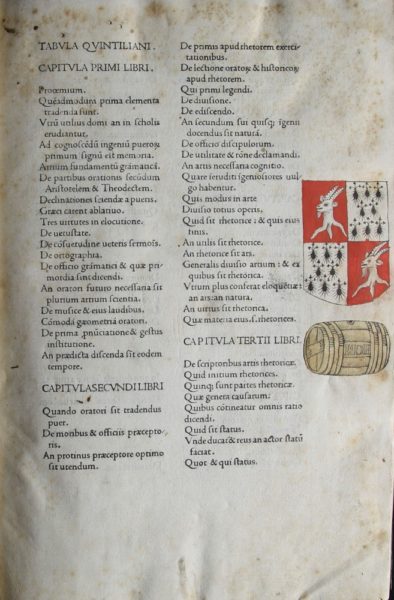 TABVLA QVINTILIANI.
CAPITVLA PRIMI LIBRI.
Prooemium.
Quēadmodum prima elementa
tradenda sunt.
Vtrū utilius domi an in scholis
erudiantur.
Ad cognoscēdū ingeniū pueroꝝ
primum signū est memoria.
Artium fundamentū grāmaticā.
De partibus orationis secūdum
Aristotelem & Theodectem.
Declinationes sciendæ a pueris.
Græci carent ablatiuo.
Tres uirtutes in elocutione.
De uetustate.
De cōsuetudine ueteris sermōis.
De ortographia.
De officio grāmatici & quæ pri-
mordia sint dicendi.
An oratori futuro necessaria sit
plurium artium scientia.
De musice & eius laudibus.
Cōmodā geometriā oratori.
De prima pnūciatione & gestus
institutione.
An prædicta discenda sit eodem
tempore.
CAPITVLA SECVNDI LIBRI
Quando oratori sit tradendus
puer.
De moribus & officiis præcepto-
ris.
An protinus præceptore optimo
sit utendum.
De primis apud rhetorem exerci-
tationibus.
De lectione oratoꝝ & historicoꝝ
apud rhetorem.
Qui primi legendi.
De diuisione.
De ediscendo.
An secundum sui quisqꝫ īgenii
docendus sit naturā.
De officio discipulorum.
De utilitate & rōne declamandi.
An artis necessaria cognitio.
Quare īeruditi īgeniosiores uul-
go habentur.
Quis modus in arte
Diuisio totius operis.
Quid sit rhetorice : & quis eius
finis.
An utilis sit rhetorice.
An rhetorice sit ars.
Generalis diuisio artium : & ex
quibus sit rhetorica.
Vtrum plus conferat eloquētiæ
an ars: an natura.
An uirtus sit rhetorica.
Quæ materia eius.s. rhetorices.
CAPITVLA TERTII LIBRI.
De scriptoribus artis rhetoricæ.
Quid initium rhetorices.
Quinqꝫ sunt partes rhetoricæ.
Quæ genera causarum.
Quibus cōtineatur omnis ratio
dicendi.
Quid sit status.
Vnde ducat & reus an actor statū
faciat.
Quot & qui status.